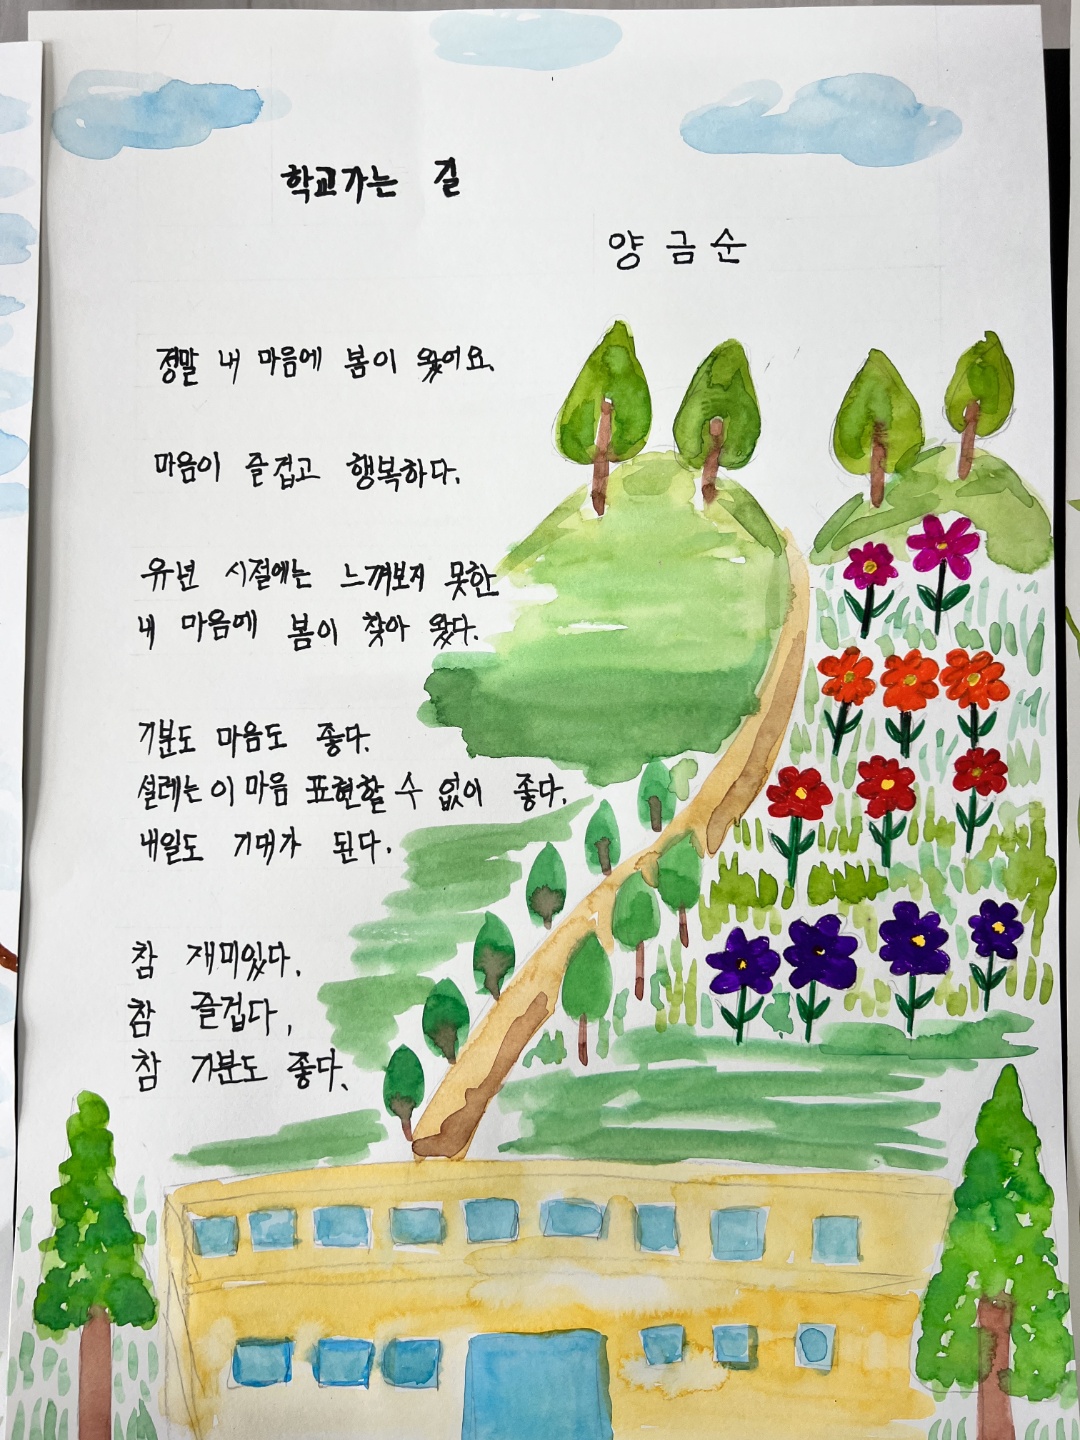 학교가는 길
양금순
정말 내 마음에 봄이 왔어요.
마음이 즐겁고 행복하다.
유년 시절에는 느껴보지 못한
내 마음에 봄이 찾아 왔다.
기분도 마음도 좋다.
설레는 이 마음 표현할 수 없이 좋다.
내일도 기대가 된다.
참 재미있다.
참 즐겁다,
참 기분도 좋다.